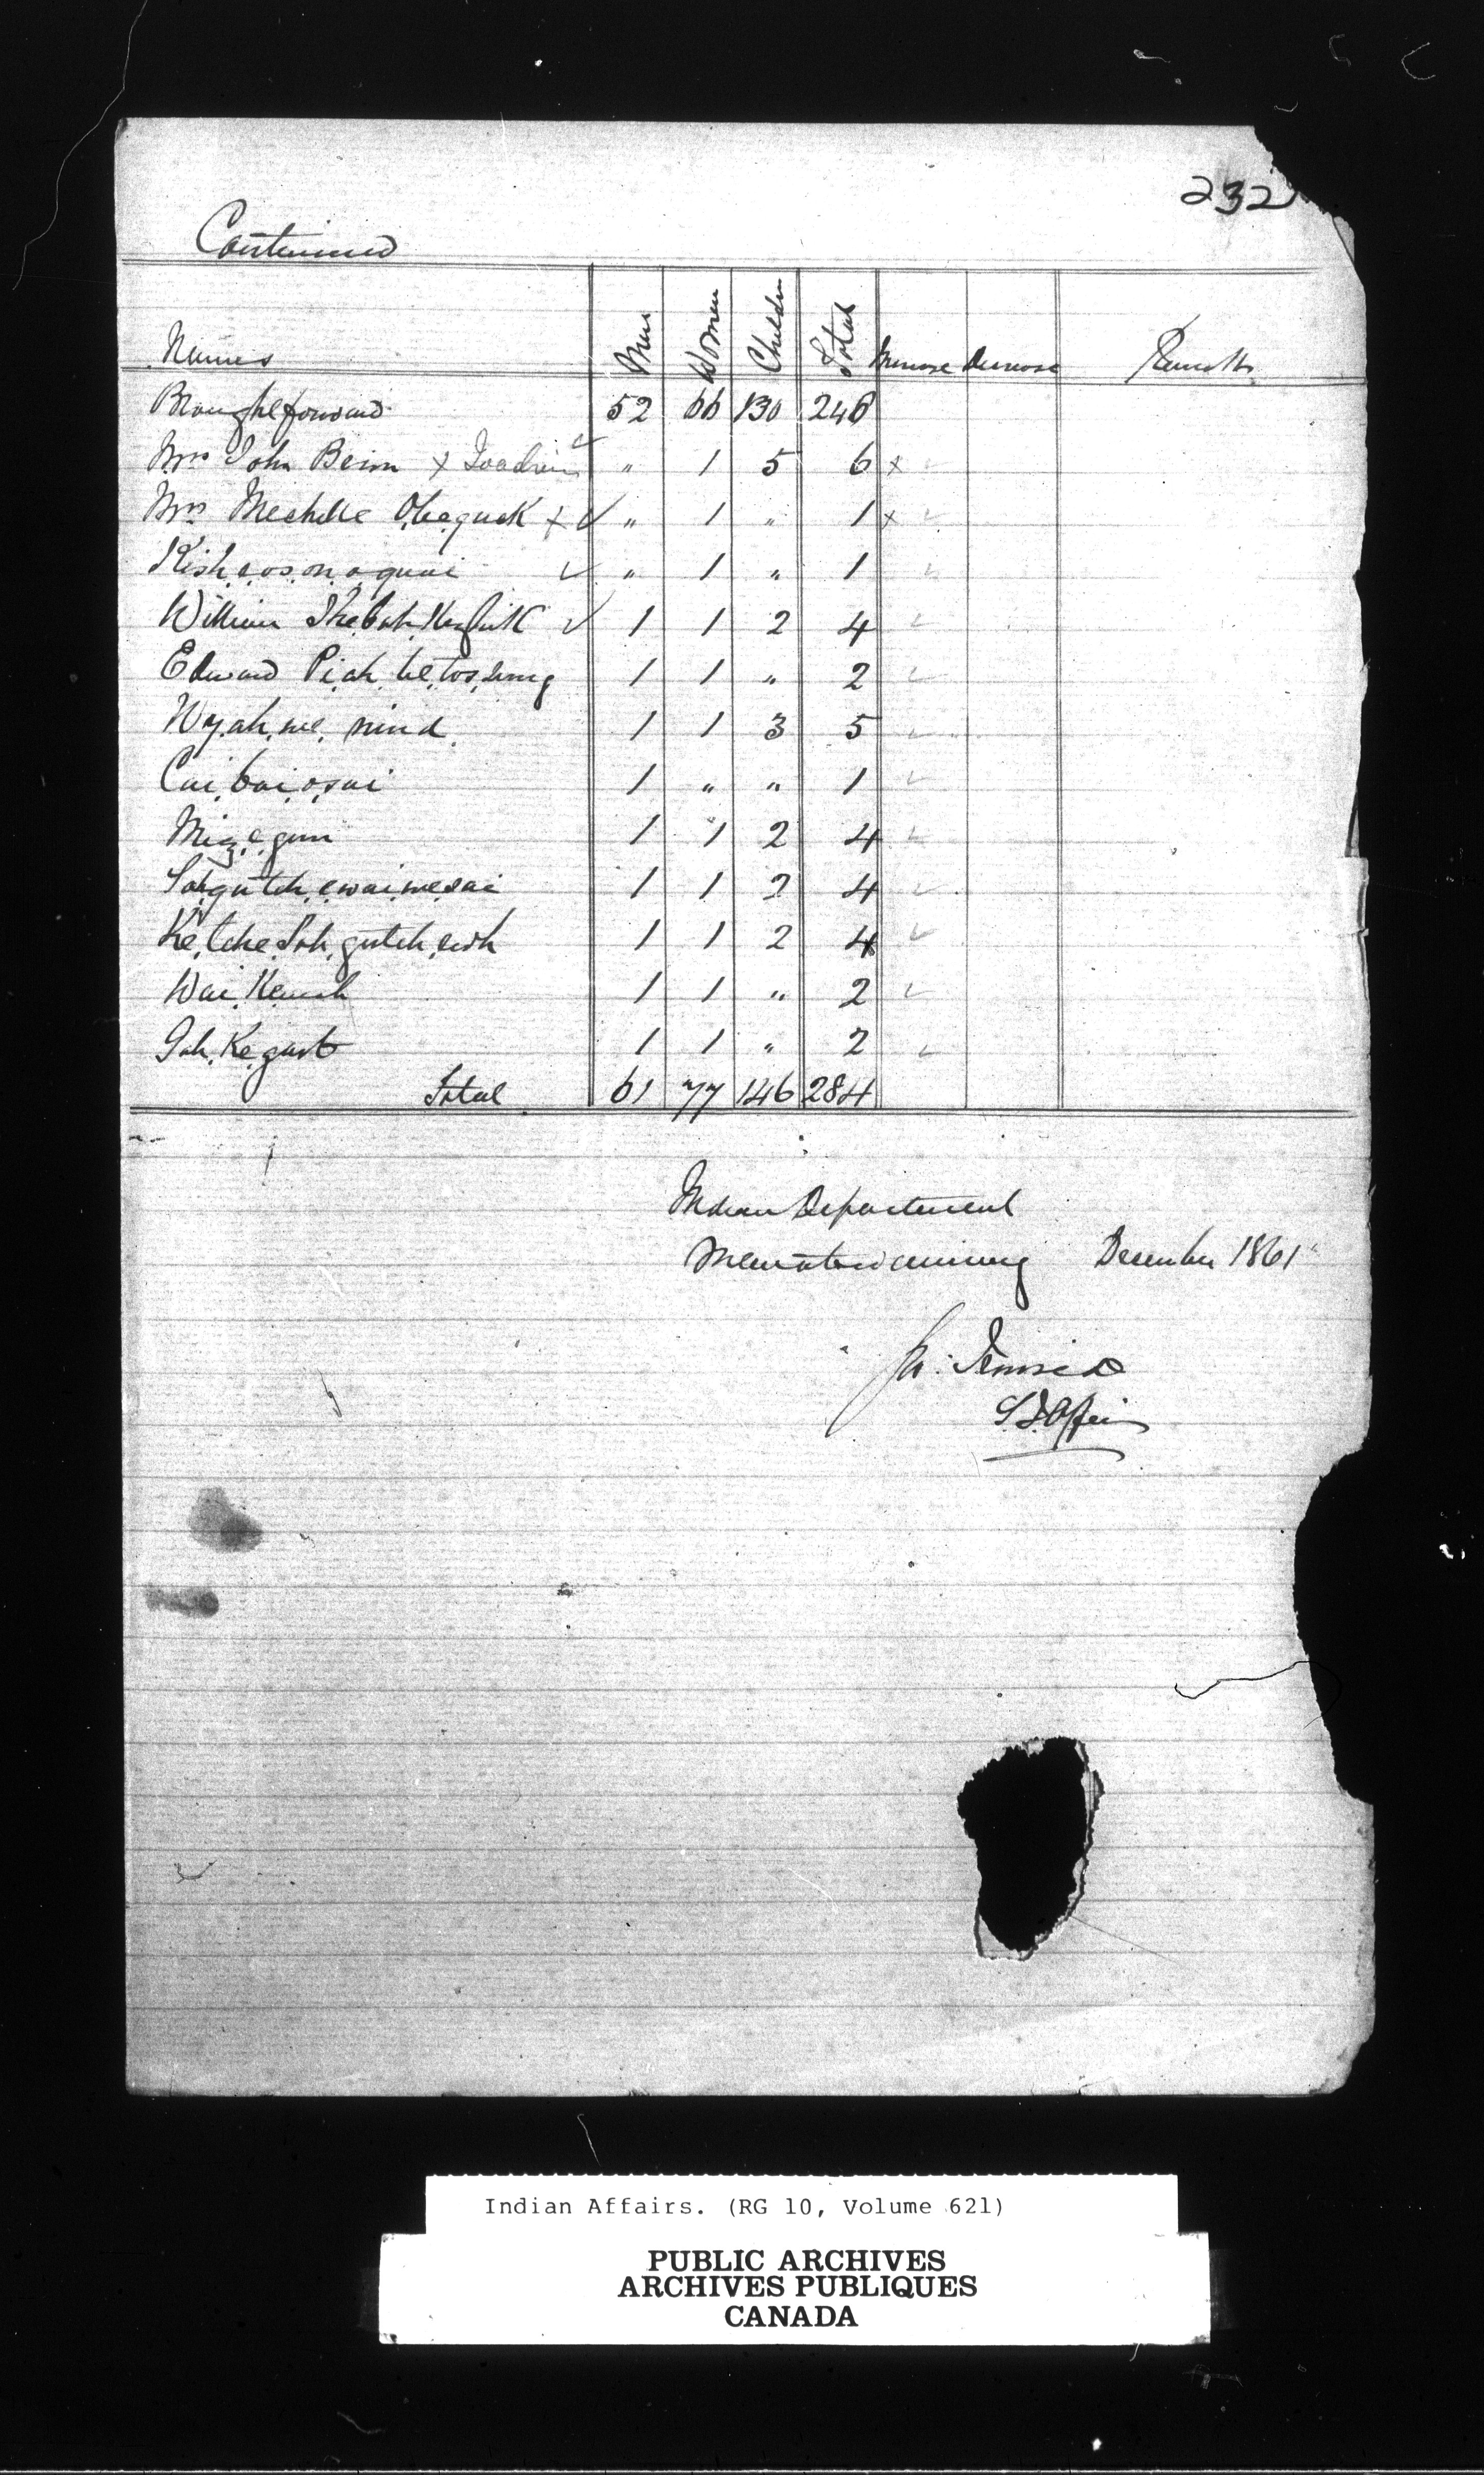 232
Continued
Names Men Women Children Total Increase Decrease Remarks
Brought forward 52 66 130 248
Mrs John Beim x " 1 5 6 x
Mrs Mechelle O,ba,guck x ✓ " 1 " 1 x ✓
Kish,e,os,on,o,quai ✓ " 1 " 1 ✓
William ✓ 1 1 2 4 ✓
Edward Pi,ah,be,tos,sung 1 1 " 2 ✓
Wy,ah,sue,nind 1 1 3 5 ✓
Cai,bai,o,sai 1 " " 1 ✓
Miz,e,gun 1 1 2 4 ✓
Sah,gutch,e,wai,we,sai 1 1 2 4 ✓
Ke,tche,Sah,gutch,ewh 1 1 2 4 ✓
Wai,Kewah 1 1 " 2 ✓
Gah,Ke,gust 1 1 " 2 ✓
Total 61 77 146 284
Indian Department
Manitowaning December 1861
S. I. Affairs
Indian Affairs. (RG 10, Volume 621)
PUBLIC ARCHIVES
ARCHIVES PUBLIQUES
CANADA